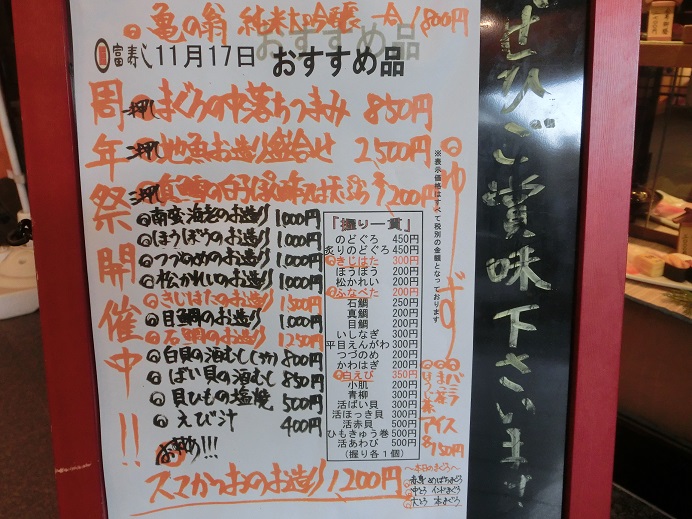 亀の翁 純米大吟醸 一合 1,800円
富寿し 11月17日 おすすめ品
周年祭開催中!!
一押し まぐろの中落ちつまみ 850円
二押し 地魚お造り盛合せ 2,500円
三押し 真鱈の白子ぽん酢又は天ぷら 1,200円
南蛮海老のお造り 1000円
ほうぼうのお造り 1000円
つづのめのお造り 1000円
松かれいのお造り 1000円
きじはたのお造り 1500円
目鯛のお造り 1000円
石鯛のお造り 1250円
白貝の酒むし(汁) 800円
ばい貝の酒むし 850円
貝ひもの塩焼 500円
えび汁 400円
おすすめ!!!
スマかつおのお造り 1200円
「握り一貫」
のどぐろ 450円
炙りのどぐろ 450円
きじはた 300円
ほうぼう 200円
松かれい 200円
ふなべた 200円
石鯛 250円
真鯛 200円
目鯛 200円
いしなぎ 300円
平目えんがわ 300円
つづのめ 200円
かわはぎ 200円
白えび 350円
小肌 200円
青柳 300円
活ばい貝 300円
活ほっき貝 300円
活赤貝 500円
ひもきゅう巻 500円
活あわび 500円
(握り各1個)
※表示価格はすべて税別の金額となっております
ゆず
バニラ
まっ茶
アイス
各150円
~本日のまぐろ~
赤身 めばちまぐろ
中とろ インドまぐろ
大とろ 本まぐろ
ぜひご賞味下さいます